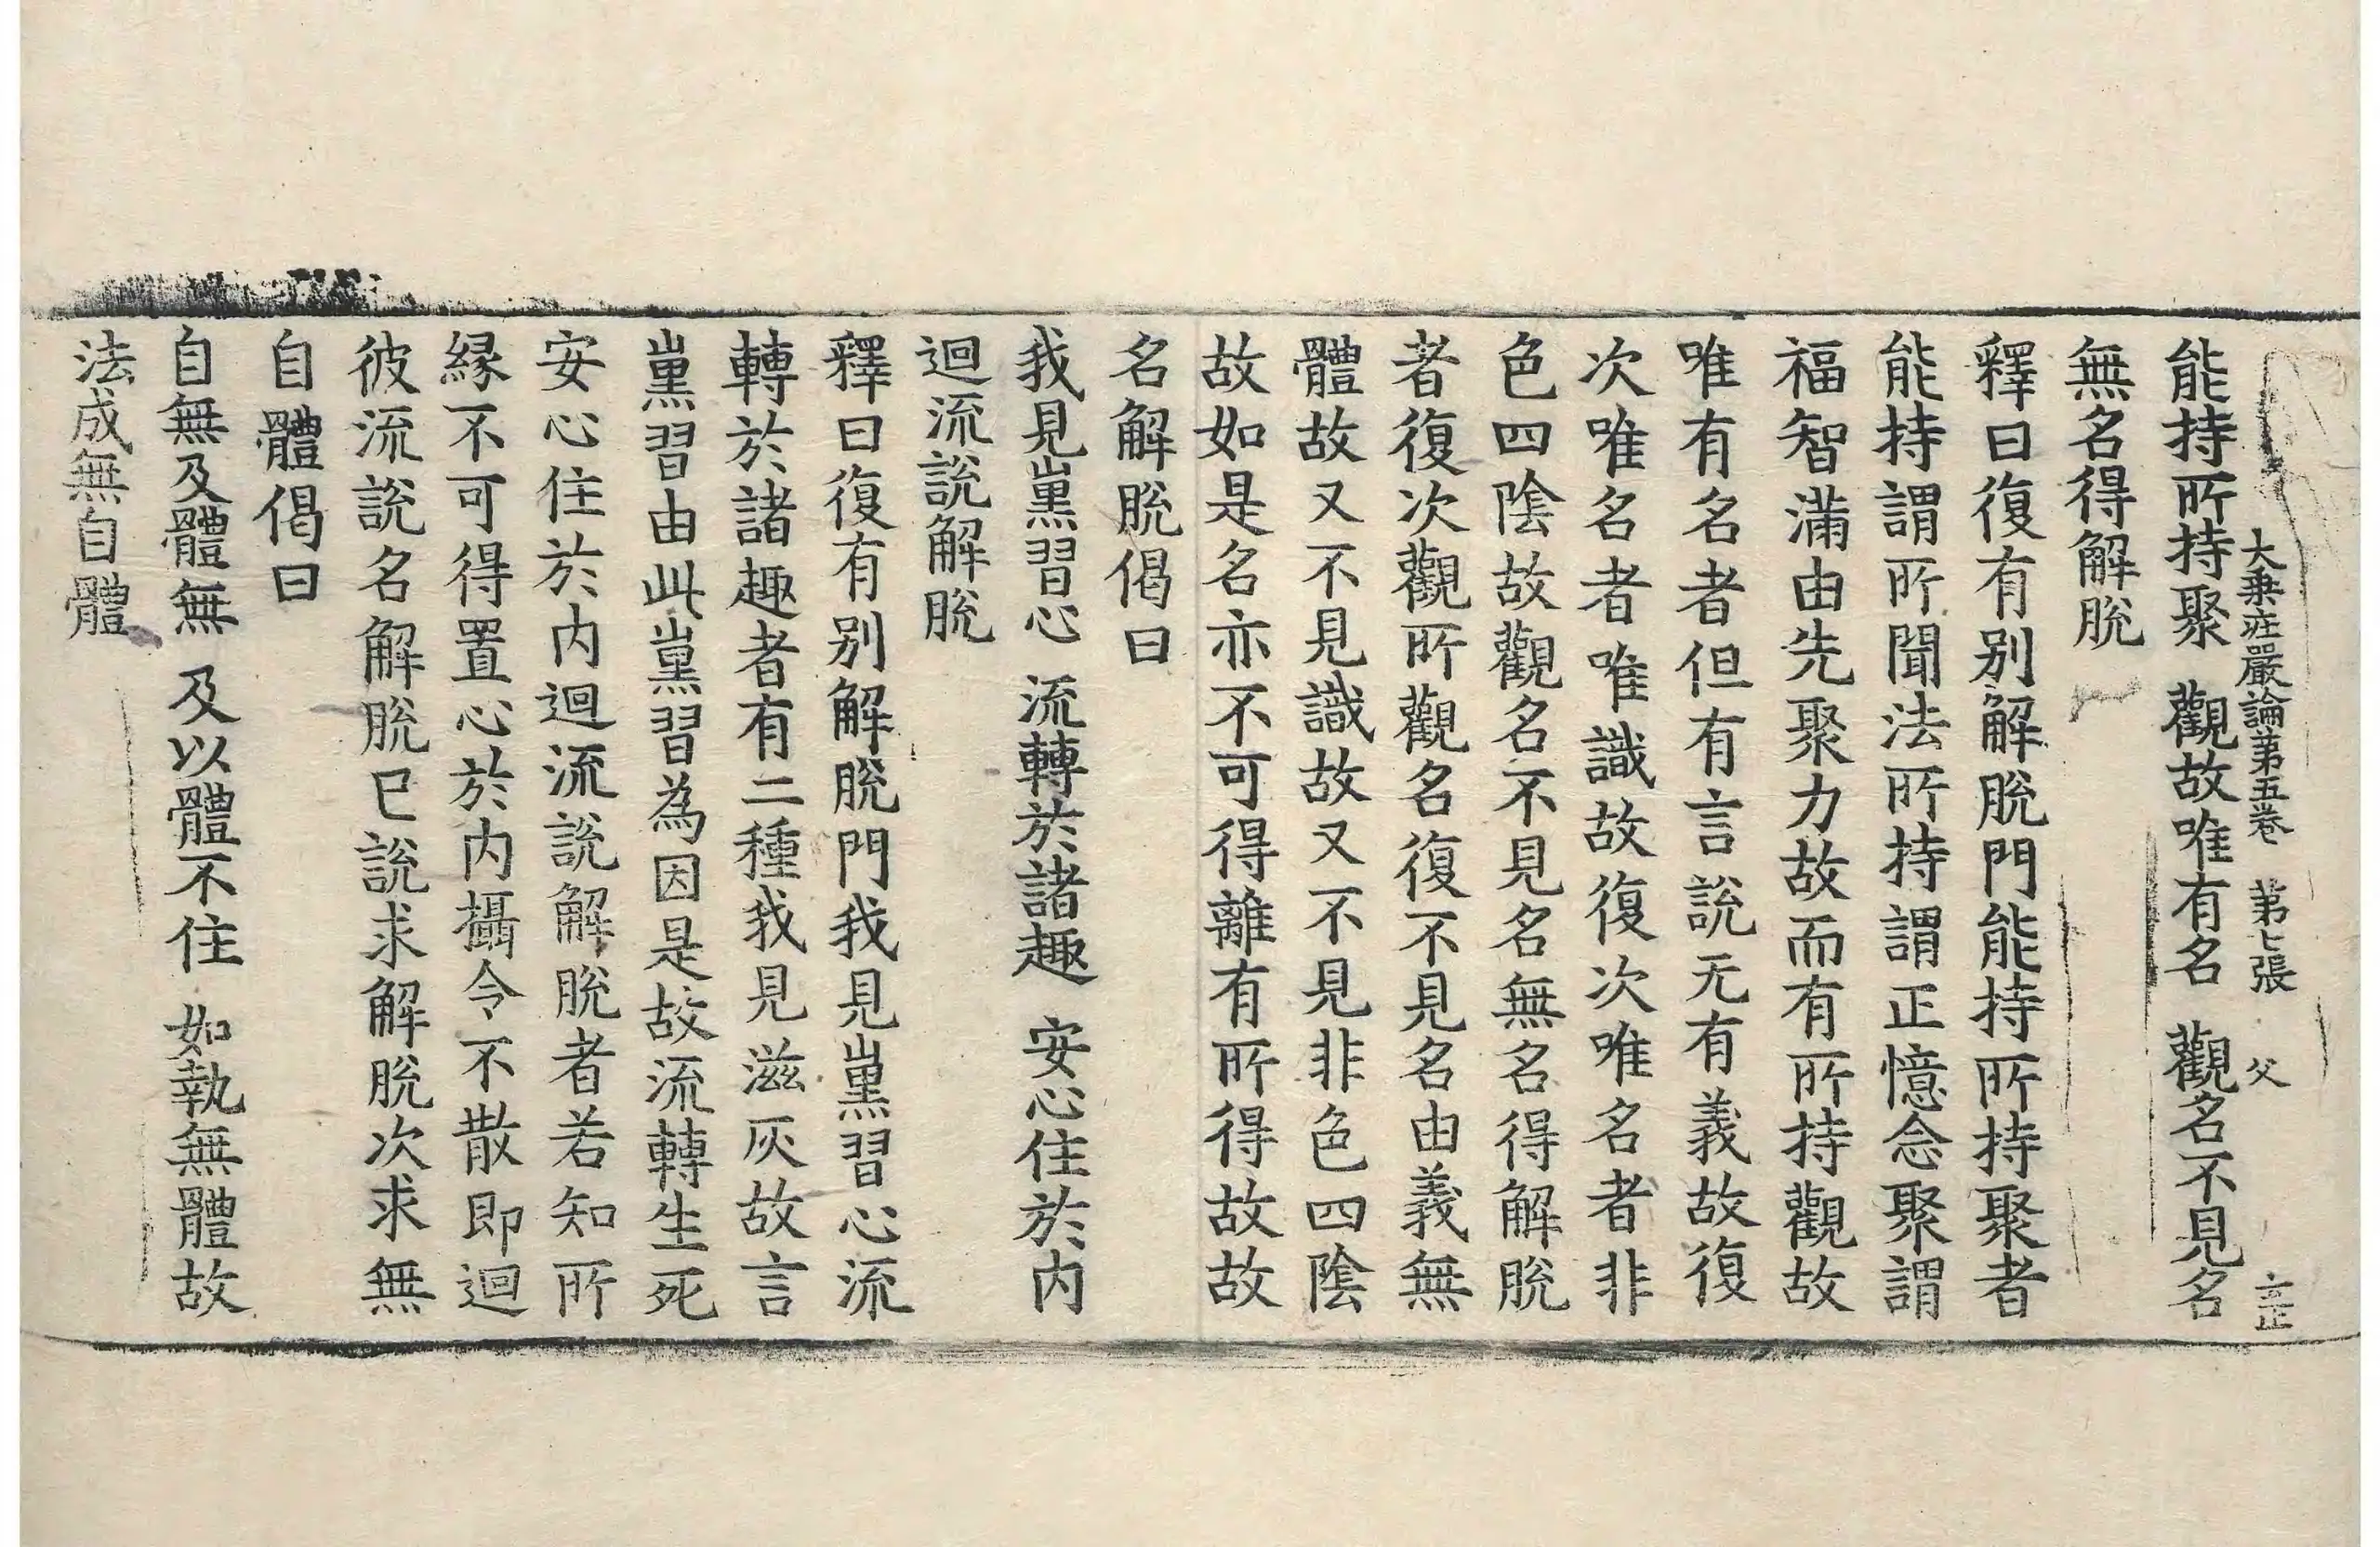 大乗荘嚴論第五卷 第七張 父
能持所持聚 觀故唯有名 觀名不見名
無名得解脫
釋曰復有别解脫門能持所持聚者
能持謂所聞法所持謂正憶念聚謂
福智滿由先聚力故而有所持觀故
唯有名者但有言說无有義故復
次唯名者唯識故復次唯名者非
色四陰故觀名不見名無名得解脫
者復次觀所觀名復不見名由義無
體故又不見識故又不見非色四陰
故如是名亦不可得離有所得故故
名解脫偈曰
我見熏習心 流轉於諸趣 安心住於内
迴流說解脫
釋曰復有别解脫門我見熏習心流
轉於諸趣者有二種我見滋灰故言
熏習由此熏習為因是故流轉生死
安心住於内迴流說解脫者若知所
縁不可得置心於内攝令不散即迴
彼流說名解脫已說求解脫次求無
自體偈曰
自無及體無 及以體不住 如執無體故
法成無自體